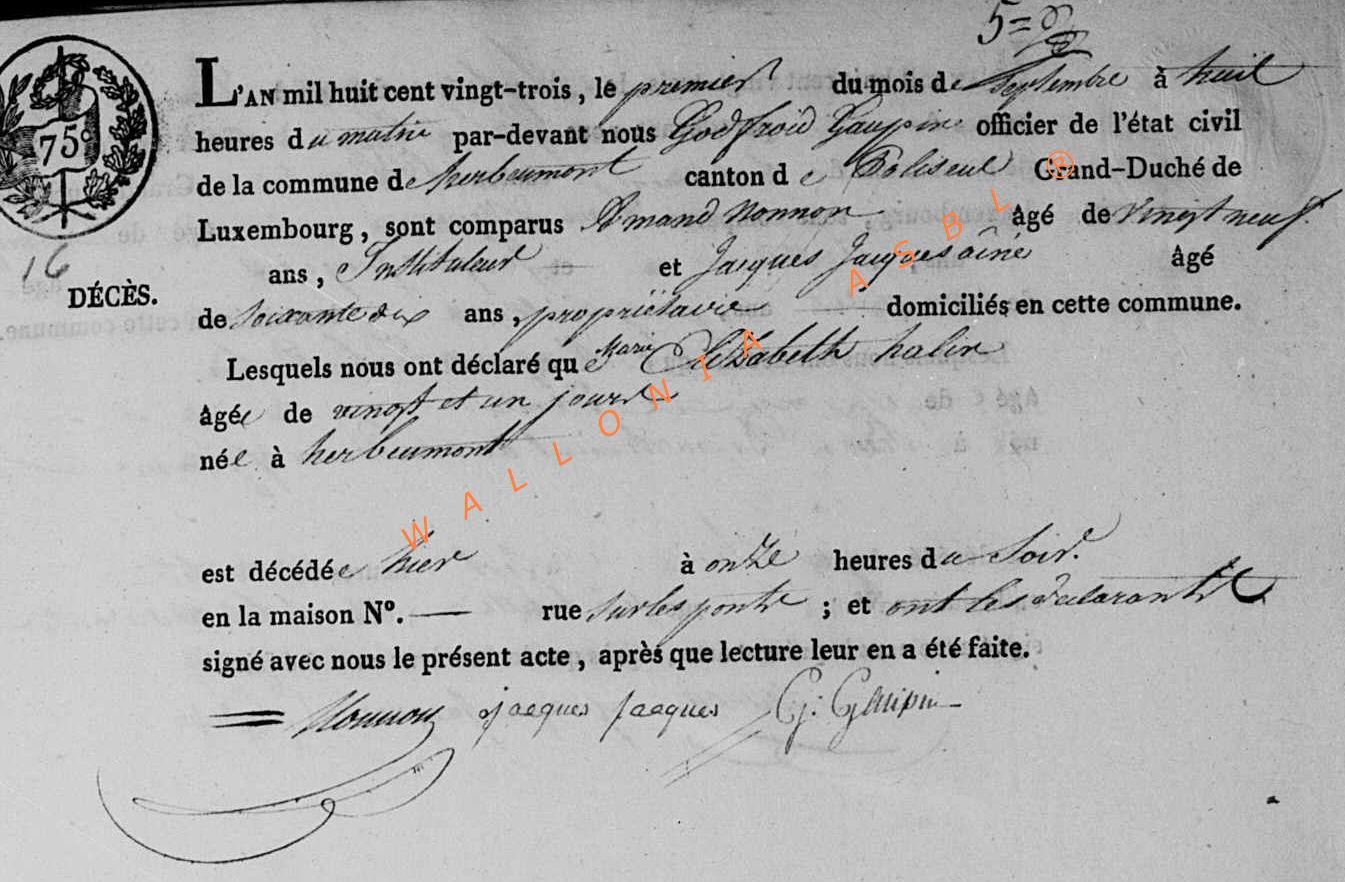 5=
75c
L'AN mil huit cent vingt-trois, le premier du mois de Septembre à huit
heures du matin par-devant nous Godfroid Gaupin officier de l'état civil
de la commune de herbeumont canton de Paliseul Grand-Duché de
Luxembourg, sont comparus Amand Nonnon âgé de vingt neuf
16
ans, Instituteur et Jacques Jacques aîné âgé
DÉCÈS.
de Soixante dix ans, propriétaire domiciliés en cette commune.
Lesquels nous ont déclaré que Marie Elisabeth halin
âgée de vingt et un jours
née à herbeumont
est décédée hier à onze heures du Soir.
en la maison N°. — rue Sur les ponts ; et ont les déclarants
signé avec nous le présent acte, après que lecture leur en a été faite.
Nonnon jacques jacques G: Gaupin
WALLONIA ASBL ®